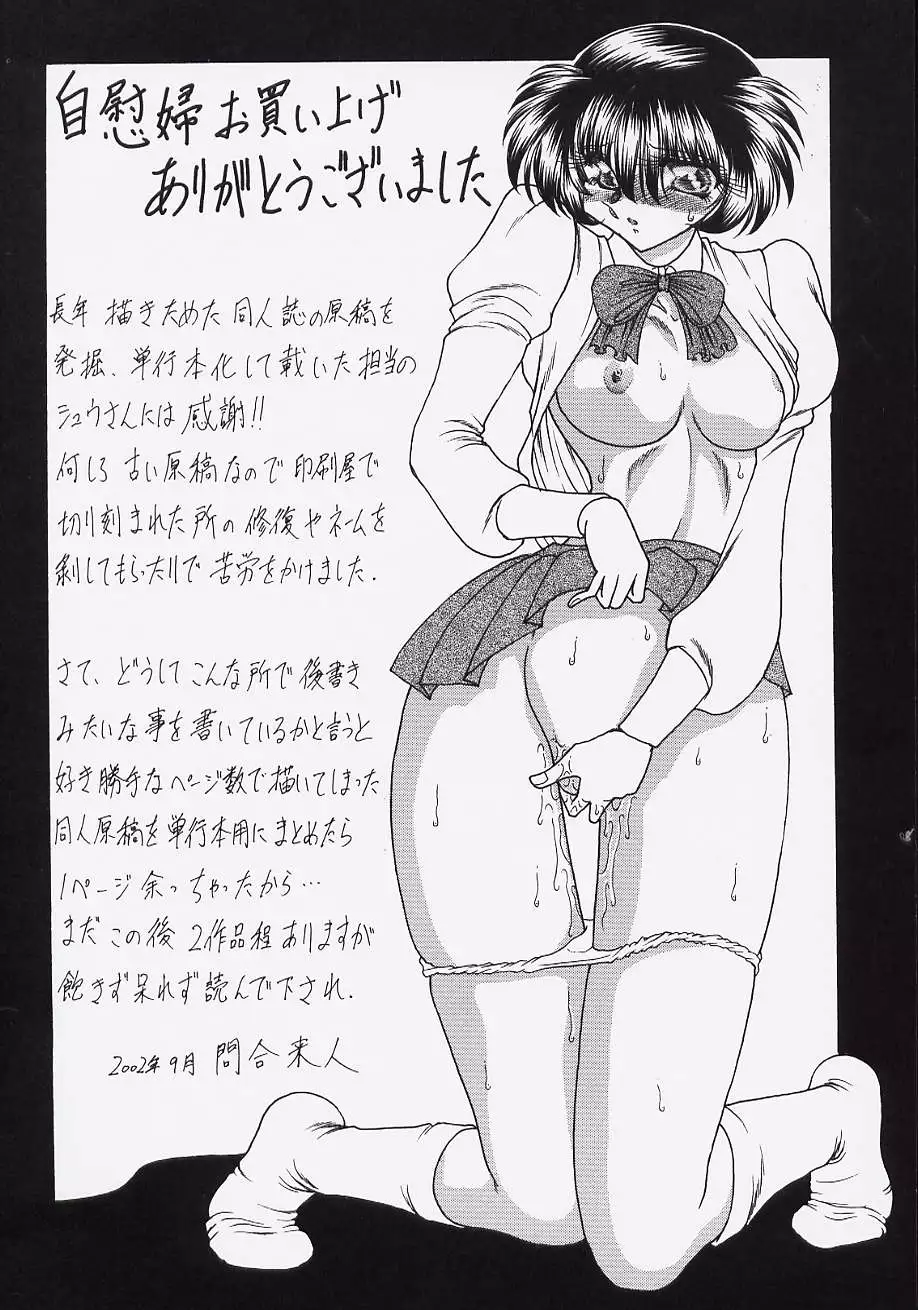 自慰婦 お買い上げ
ありがとうございました
長年 描きためた 同人誌の原稿を
発掘、単行本化して載いた担当の
シュウさんには 感謝!!
何しろ 古い原稿なので 印刷屋で
切り刻まれた所の 修復やネームを
剥してもらったりで 苦労をかけました.
さて、どうしてこんな所で後書き
みたいな事を書いているかと言うと
好き勝手なページ数で描いてしまった
同人原稿を単行本用にまとめたら
1ページ余っちゃったから…
まだ この後 2作品程ありますが
飽きず呆れず読んで下され.
2002年9月 問合来人